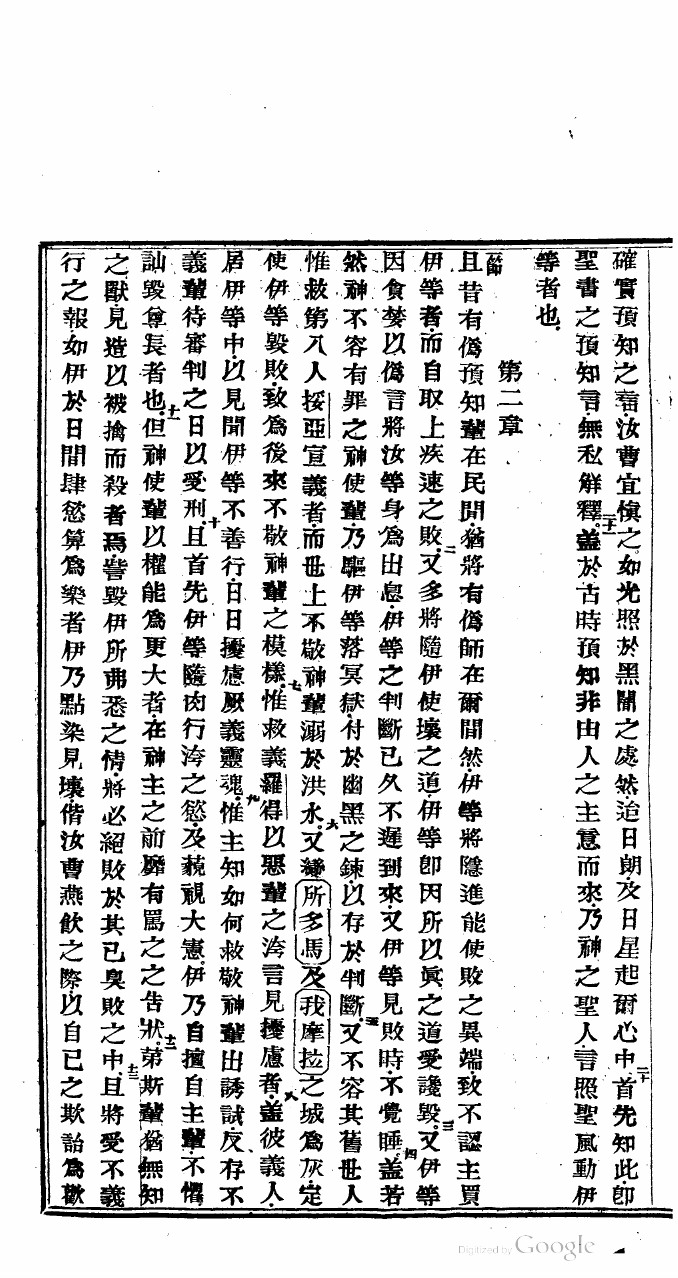 確實預知之書汝曹宜愼之如光照於黑闇之處然迨日朗及日星起爾心中二十首先知此卽
聖書之預知言無私解釋二十一蓋於古時預知非由人之主意而來乃神之聖人言照聖風動伊
等者也
第二章
一節且昔有僞預知輩在民間猶將有僞師在爾間然伊等將隱進能使敗之異端致不認主買
伊等者而自取上疾速之敗二又多將隨伊使壞之道伊等卽因所以眞之道受讒毀三又伊等
因貪婪以僞言將汝等身爲出息伊等之判斷已久不遲到來又伊等見敗時不覺睡四蓋若
然神不容有罪之神使輩乃驅伊等落冥獄付於幽黑之鍊以存於判斷五又不容其舊世人
惟救第八人挼亞宣義者而世上不敬神輩溺於洪水六又變所多馬及我摩拉之城爲灰定
使伊等毀敗致爲後來不敬神輩之模樣七惟救義羅得以惡輩之洿言見擾慮者八蓋彼義人
居伊等中以見聞伊等不善行日日擾慮厥義靈魂九惟主知如何救敬神輩出誘試反存不
義輩待審判之日以受刑十且首先伊等隨肉行洿之慾及藐視大憲伊乃自擅自主輩不懼
訕毀尊長者也十一但神使輩以權能爲更大者在神主之前靡有罵之之告狀十二第斯輩猶無知
之獸見造以被擒而殺者焉訾毀伊所弗悉之情將必絕敗於其已臭敗之中十三且將受不義
行之報如伊於日間肆慾算爲樂者伊乃點染見壞偕汝曹燕飲之際以自已之欺詒爲歡
Digitized by Google